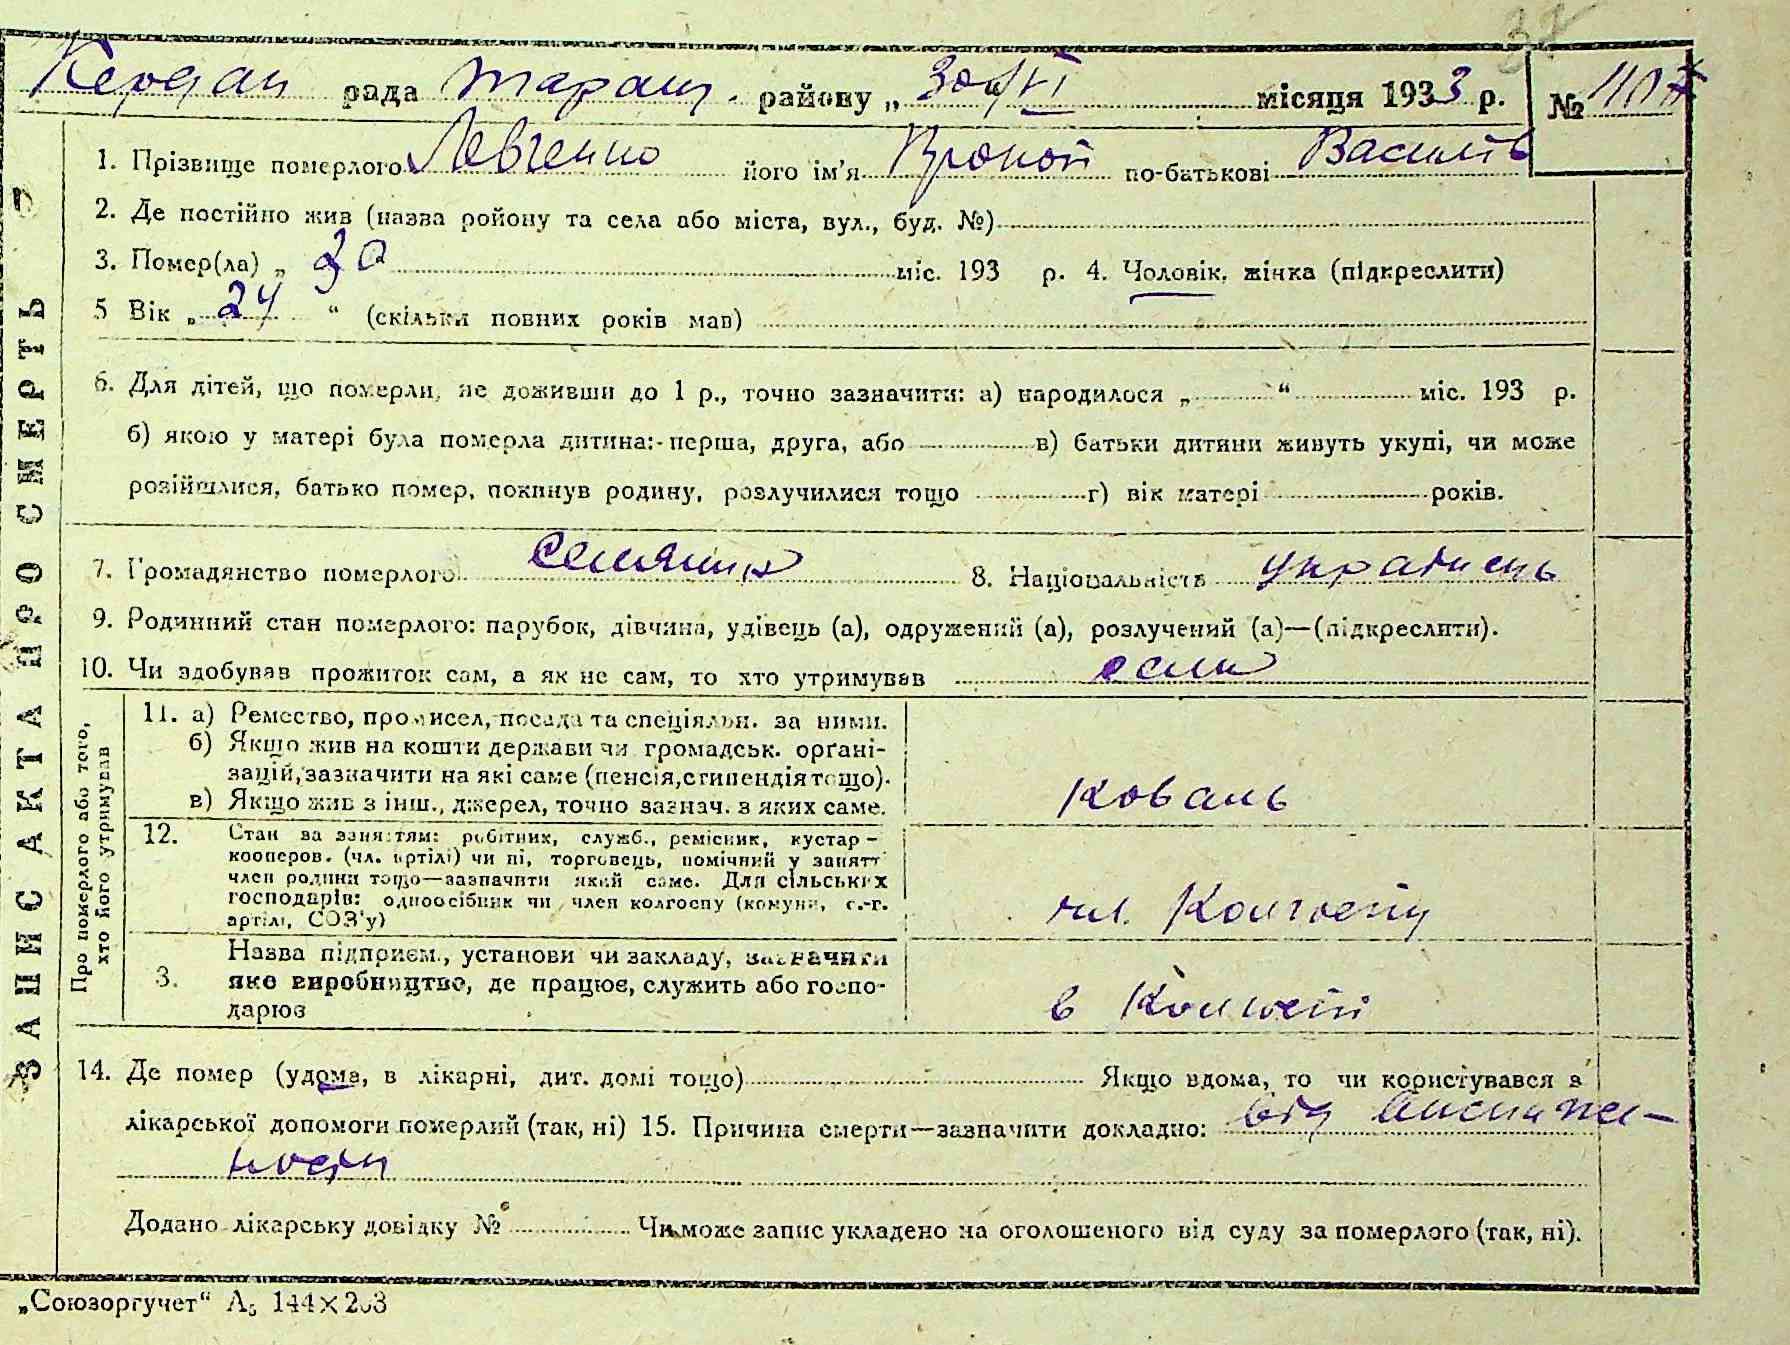 32
Кердан рада Таращ. району „30/VI місяця 1933 р. №
1. Прізвище померлого Левченко його ім'я Прокоп по-батькові Василів
2. Де постійно жив (назва ройону та села або міста, вул., буд. №)
3. Помер(ла) „ 30 міс. 193 р. 4. Чоловік, жінка (підкреслити)
5 Вік „ 24 “ (скільки повних років мав)
6. Для дітей, що померли, не доживши до 1 р., точно зазначити: а) народилося „ “ міс. 193 р.
б) якою у матері була померла дитина:- перша, друга, або в) батьки дитини живуть укупі, чи може
розійшлися, батько помер, покинув родину, розлучилися тощо г) вік матері років.
7. Громадянство померлого селянин 8. Національність українець
9. Родинний стан померлого: парубок, дівчина, удівець (а), одружений (а), розлучений (а)—(підкреслити).
10. Чи здобував прожиток сам, а як не сам, то хто утримував сам
ЗАПИС АКТА ПРО СМЕРТЬ
Про померлого або того, хто його утримував
11. а) Ремество, промисел, посада та спеціяльн. за ними.
б) Якщо жив на кошти держави чи громадськ. орґані-
зацій, зазначити на які саме (пенсія, стипендія тощо).
в) Якщо жив з інш., джерел, точно зазнач. з яких саме.
Коваль
12. Стан за заняттям: робітник, служб., ремісник, кустар –
кооперов. (чл. артілі) чи ні, торговець, помічний у занятт
член родини тощо—зазначити який саме. Для сільських
господарів: одноосібник чи член колгоспу (комуни, с.-г.
артілі, СОЗ'у)
чл. Колгоспу
3. Назва підприєм., установи чи закладу, зазначити
яке виробництво, де працює, служить або госпо-
дарює
в Колгоспі
14. Де помер (удома, в лікарні, дит. домі тощо) Якщо вдома, то чи користувався з
лікарської допомоги померлий (так, ні) 15. Причина смерти—зазначити докладно: від висна-
Додано лікарську довідку № Чи може запис укладено на оголошеного від суду за померлого (так, ні).
„Союзоргучет“ А5 144×203